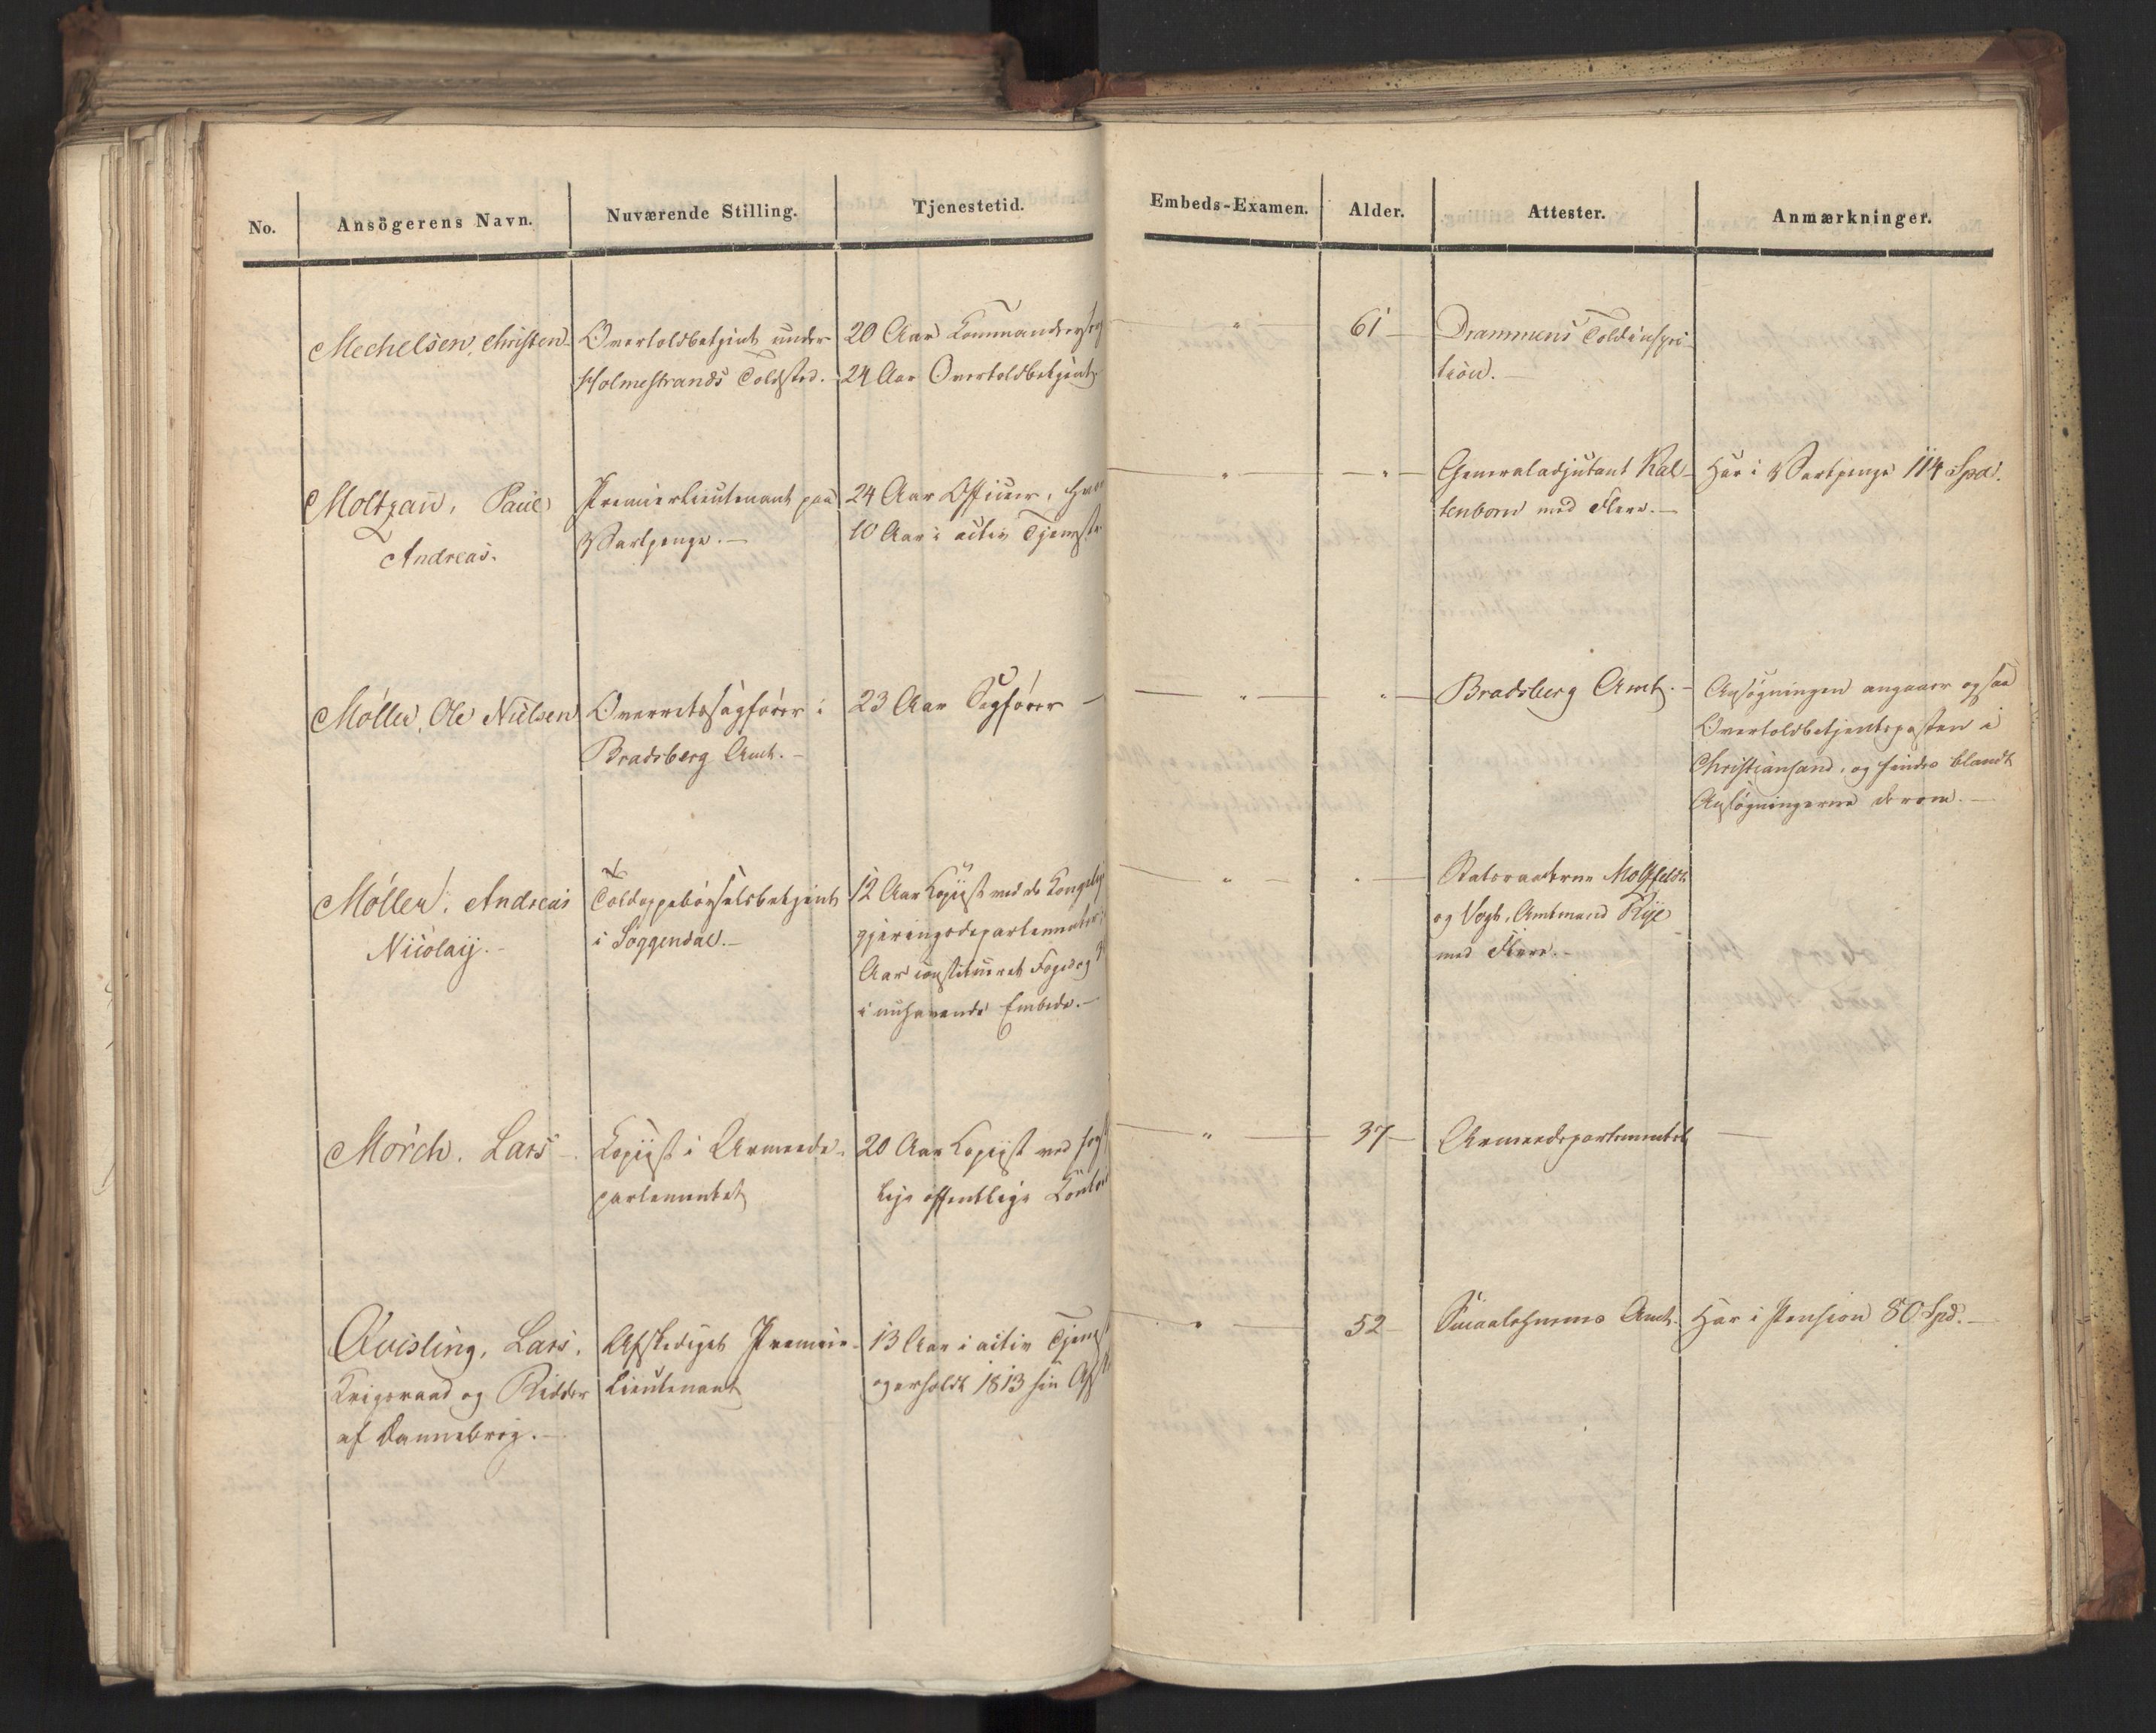 No.
Ansögerens Navn.
Nuværende Stilling.
Tjenestetid.
Embeds-Examen.
Alder.
Attester.
Anmærkninger.
Mechelsen, Christen
Overtoldbetjent under
Holmestrands Toldsted. -
20 Aar
24 Aar Overtoldbetjent
" 
61
Drammens Toldinspec-
tion. -
Moltzau, Paul
Andreas.
Premierlieutenant paa
Vartpenge. -
24 Aar Officier,
10 Aar i activ Tjeneste
"
"
Generaladjutant Kal-
tenborn med Flere. -
Har i Vartpenge 114 Spd.
Möller, Ole Nielsen
Overretssagfører i
Bradsberg Amt. -
23 Aar Sagfører -
"
"
Bradsberg Amt. -
Ansøgningen angaaer ogsaa
Overtoldbetjentposten i
Christiansand, og findes blandt
Ansøgningerne derom. -
Möller, Andreas
Nicolay. -
Toldoppebørselsbetjent
i Soggendal. -
12 Aar Kopiist ved de Kongelige
gjeringsdepartementer,
Aar constitueret Foged og 3
i nuhavende Embede. -
"
"
Statsraaderne Motzfeldt
og Vogt, Amtmand Rye
med Flere. -
Mörch. Lars -
Kopiist i Armeede-
partementet
20 Aar Kopiist ved
lige offentlige Contoi
"
37
Armeedepartementet
Qvisling, Lars,
Krigsraad og Ridder
af Dannebrog. -
Afskediget Premier-
lieutenant
13 Aar i activ Tjenest
og erholdt 1813 sin Afsk
"
52
Smaalehnenes Amt.
Har i Pension 80 Spd. -